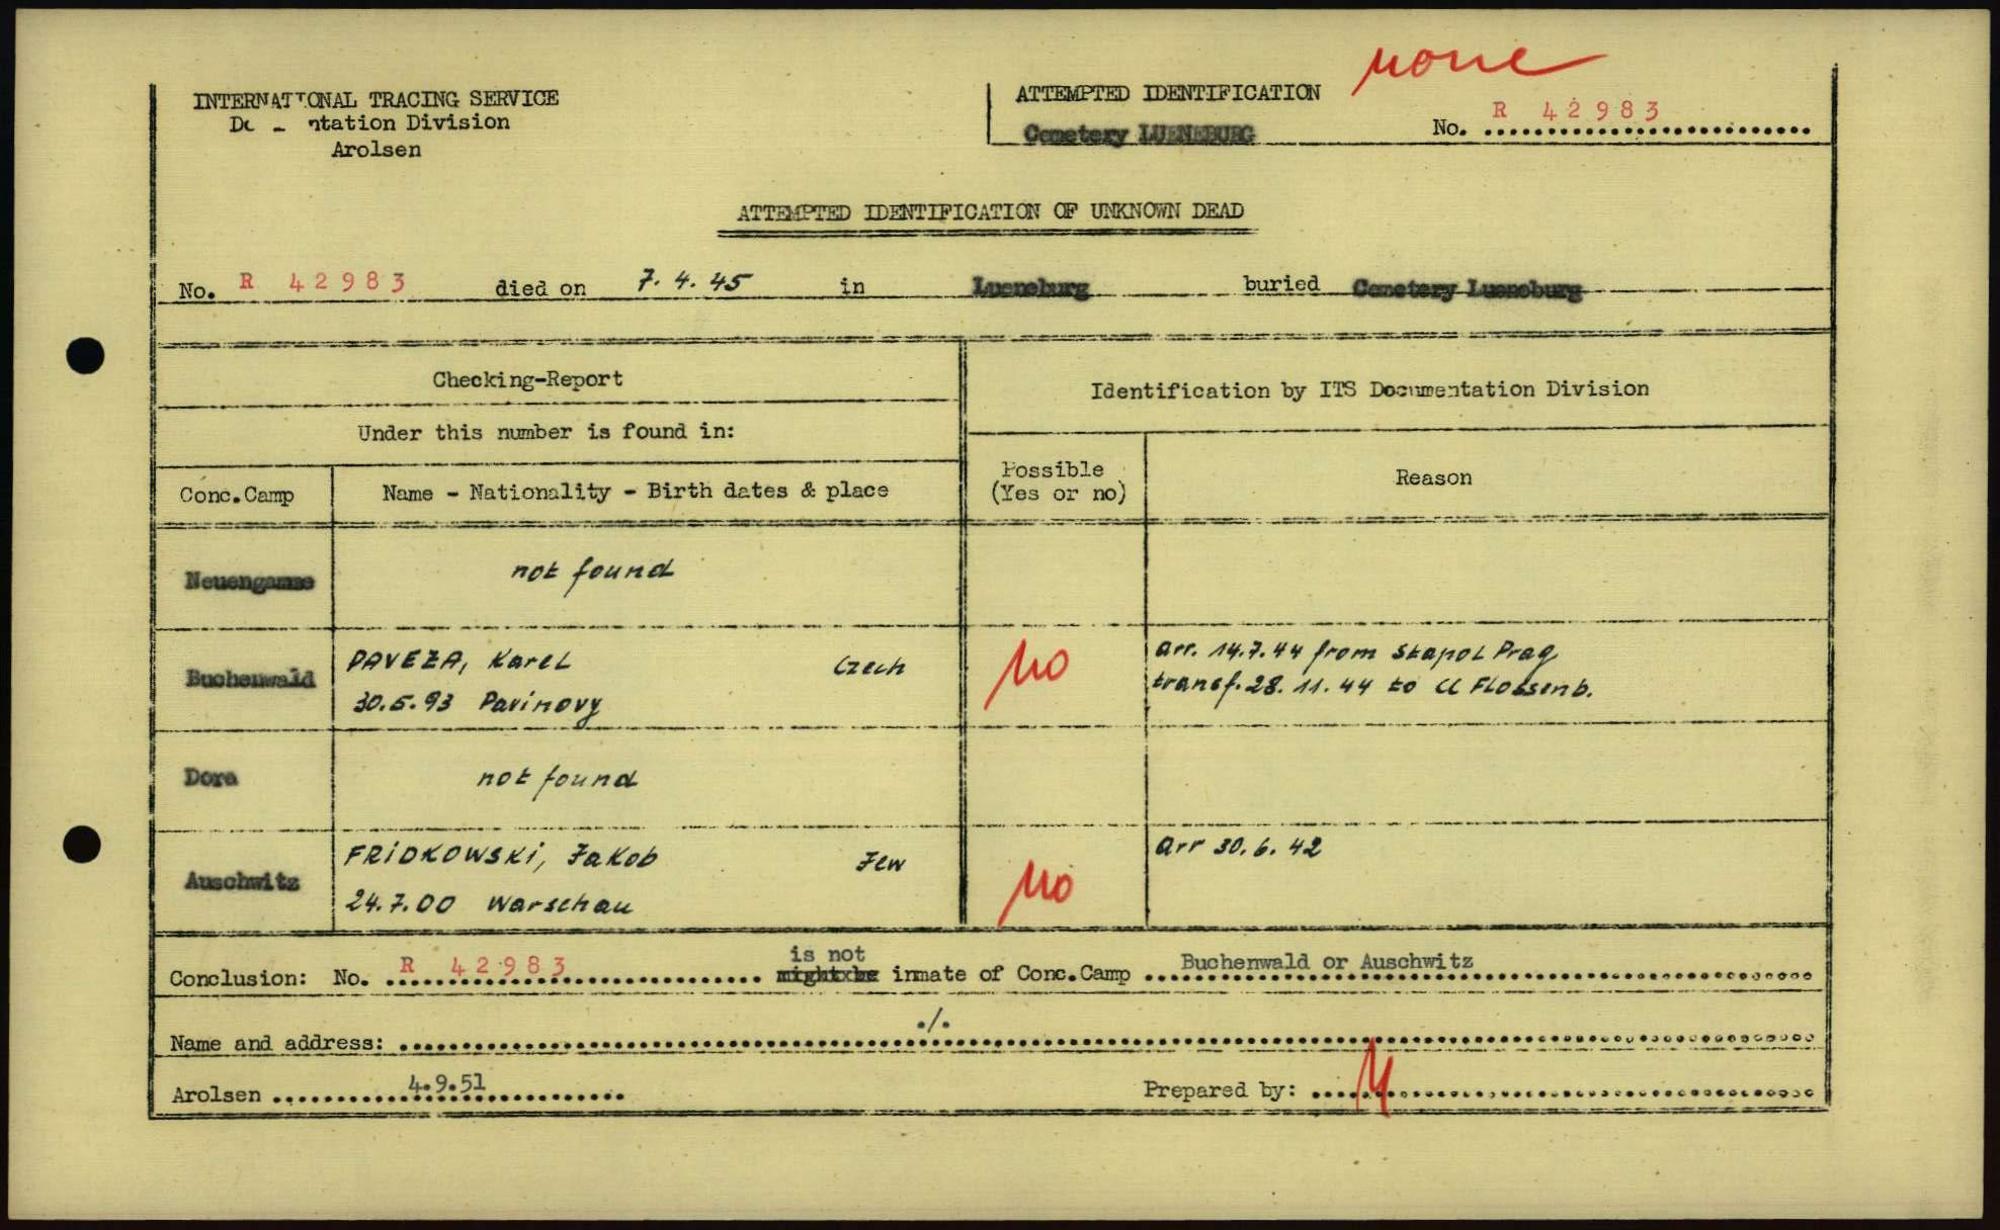 none
INTERNATIONAL TRACING SERVICE
ntation Division
Arolsen
ATTEMPTED IDENTIFICATION
Cemetery LUENEBURG No. R 42983
ATTEMPTED IDENTIFICATION OF UNKNOWN DEAD
No. R 42983 died on 7. 4. 45 in Lueneburg buried Cemetery Lueneburg
Checking-Report
Identification by ITS Documentation Division
Under this number is found in:
Conc.Camp
Name - Nationality - Birth dates & place
Possible
(Yes or no)
Reason
Neuengamme
not found
Buchenwald
PAVEZA, Karel Czech
30.5.93 Pavinovy
no
arr. 14.7.44 from Stapol Prag
transf. 28.11.44 to CC Flossenb.
Dora
not found
Auschwitz
FRIDKOWSKI, Jakob Jew
24.7.00 Warschau
no
Arr 30.6.42
is not
Conclusion: No. R 42983 might be inmate of Conc.Camp Buchenwald or Auschwitz
Name and address: ./.
Arolsen 4.9.51
Prepared by: